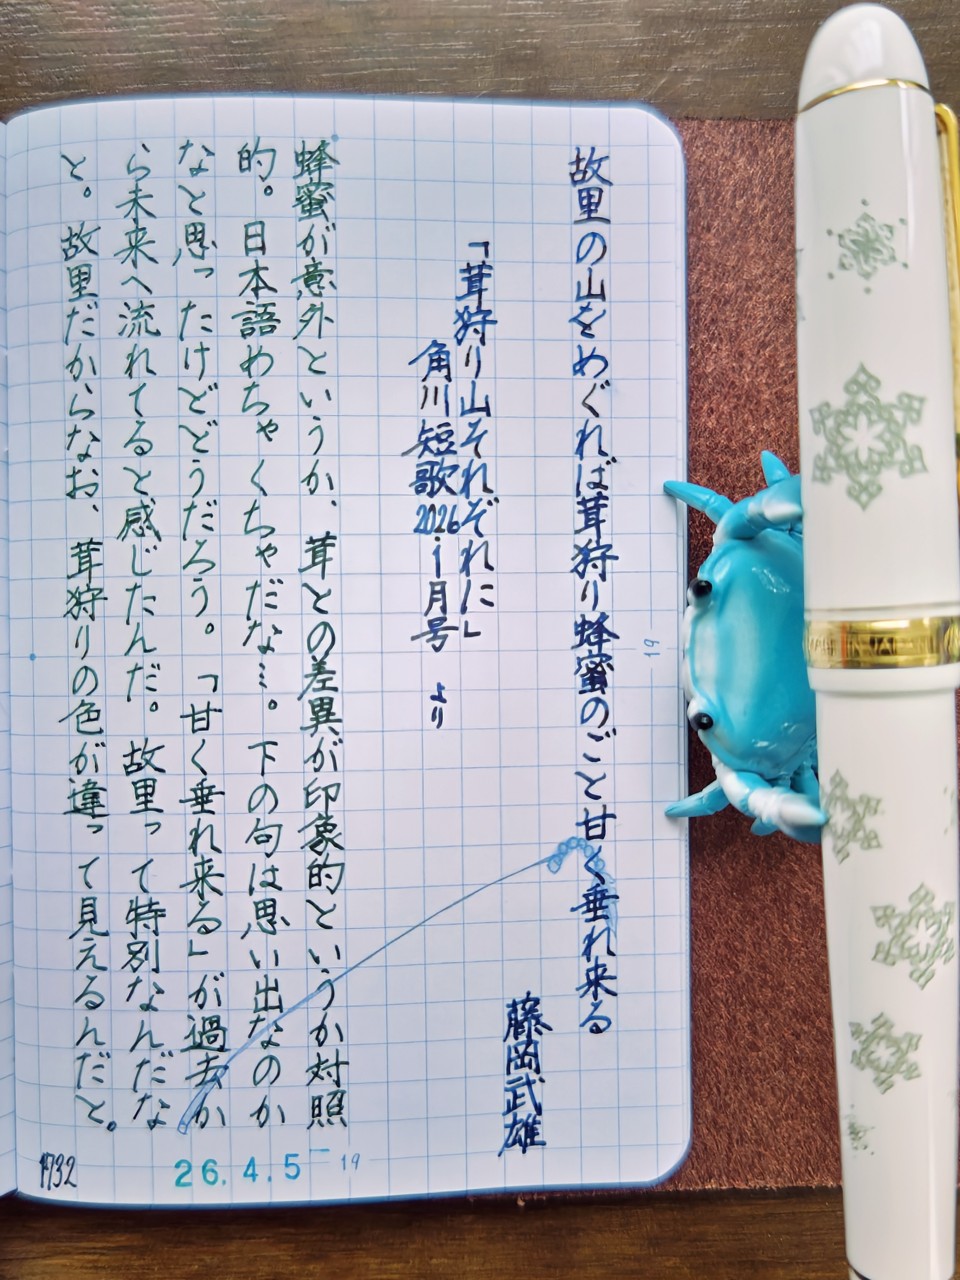 故里の山をめぐれば茸狩り蜂蜜のごと甘く垂れ来る
藤岡武雄
「茸狩り山それぞれに」
角川短歌2026.1月号 より
蜂蜜が意外というか、茸との差異が印象的というか対照
的。日本語めちゃくちゃだな…。下の句は思い出なのか
なと思ったけどどうだろう。「甘く垂れ来る」が過去か
ら未来へ流れてると感じたんだ。故里って特別なんだな
と。故里だからなお、茸狩りの色が違って見えるんだと。
1732
26.4.5
19
19
MADE IN JAPAN